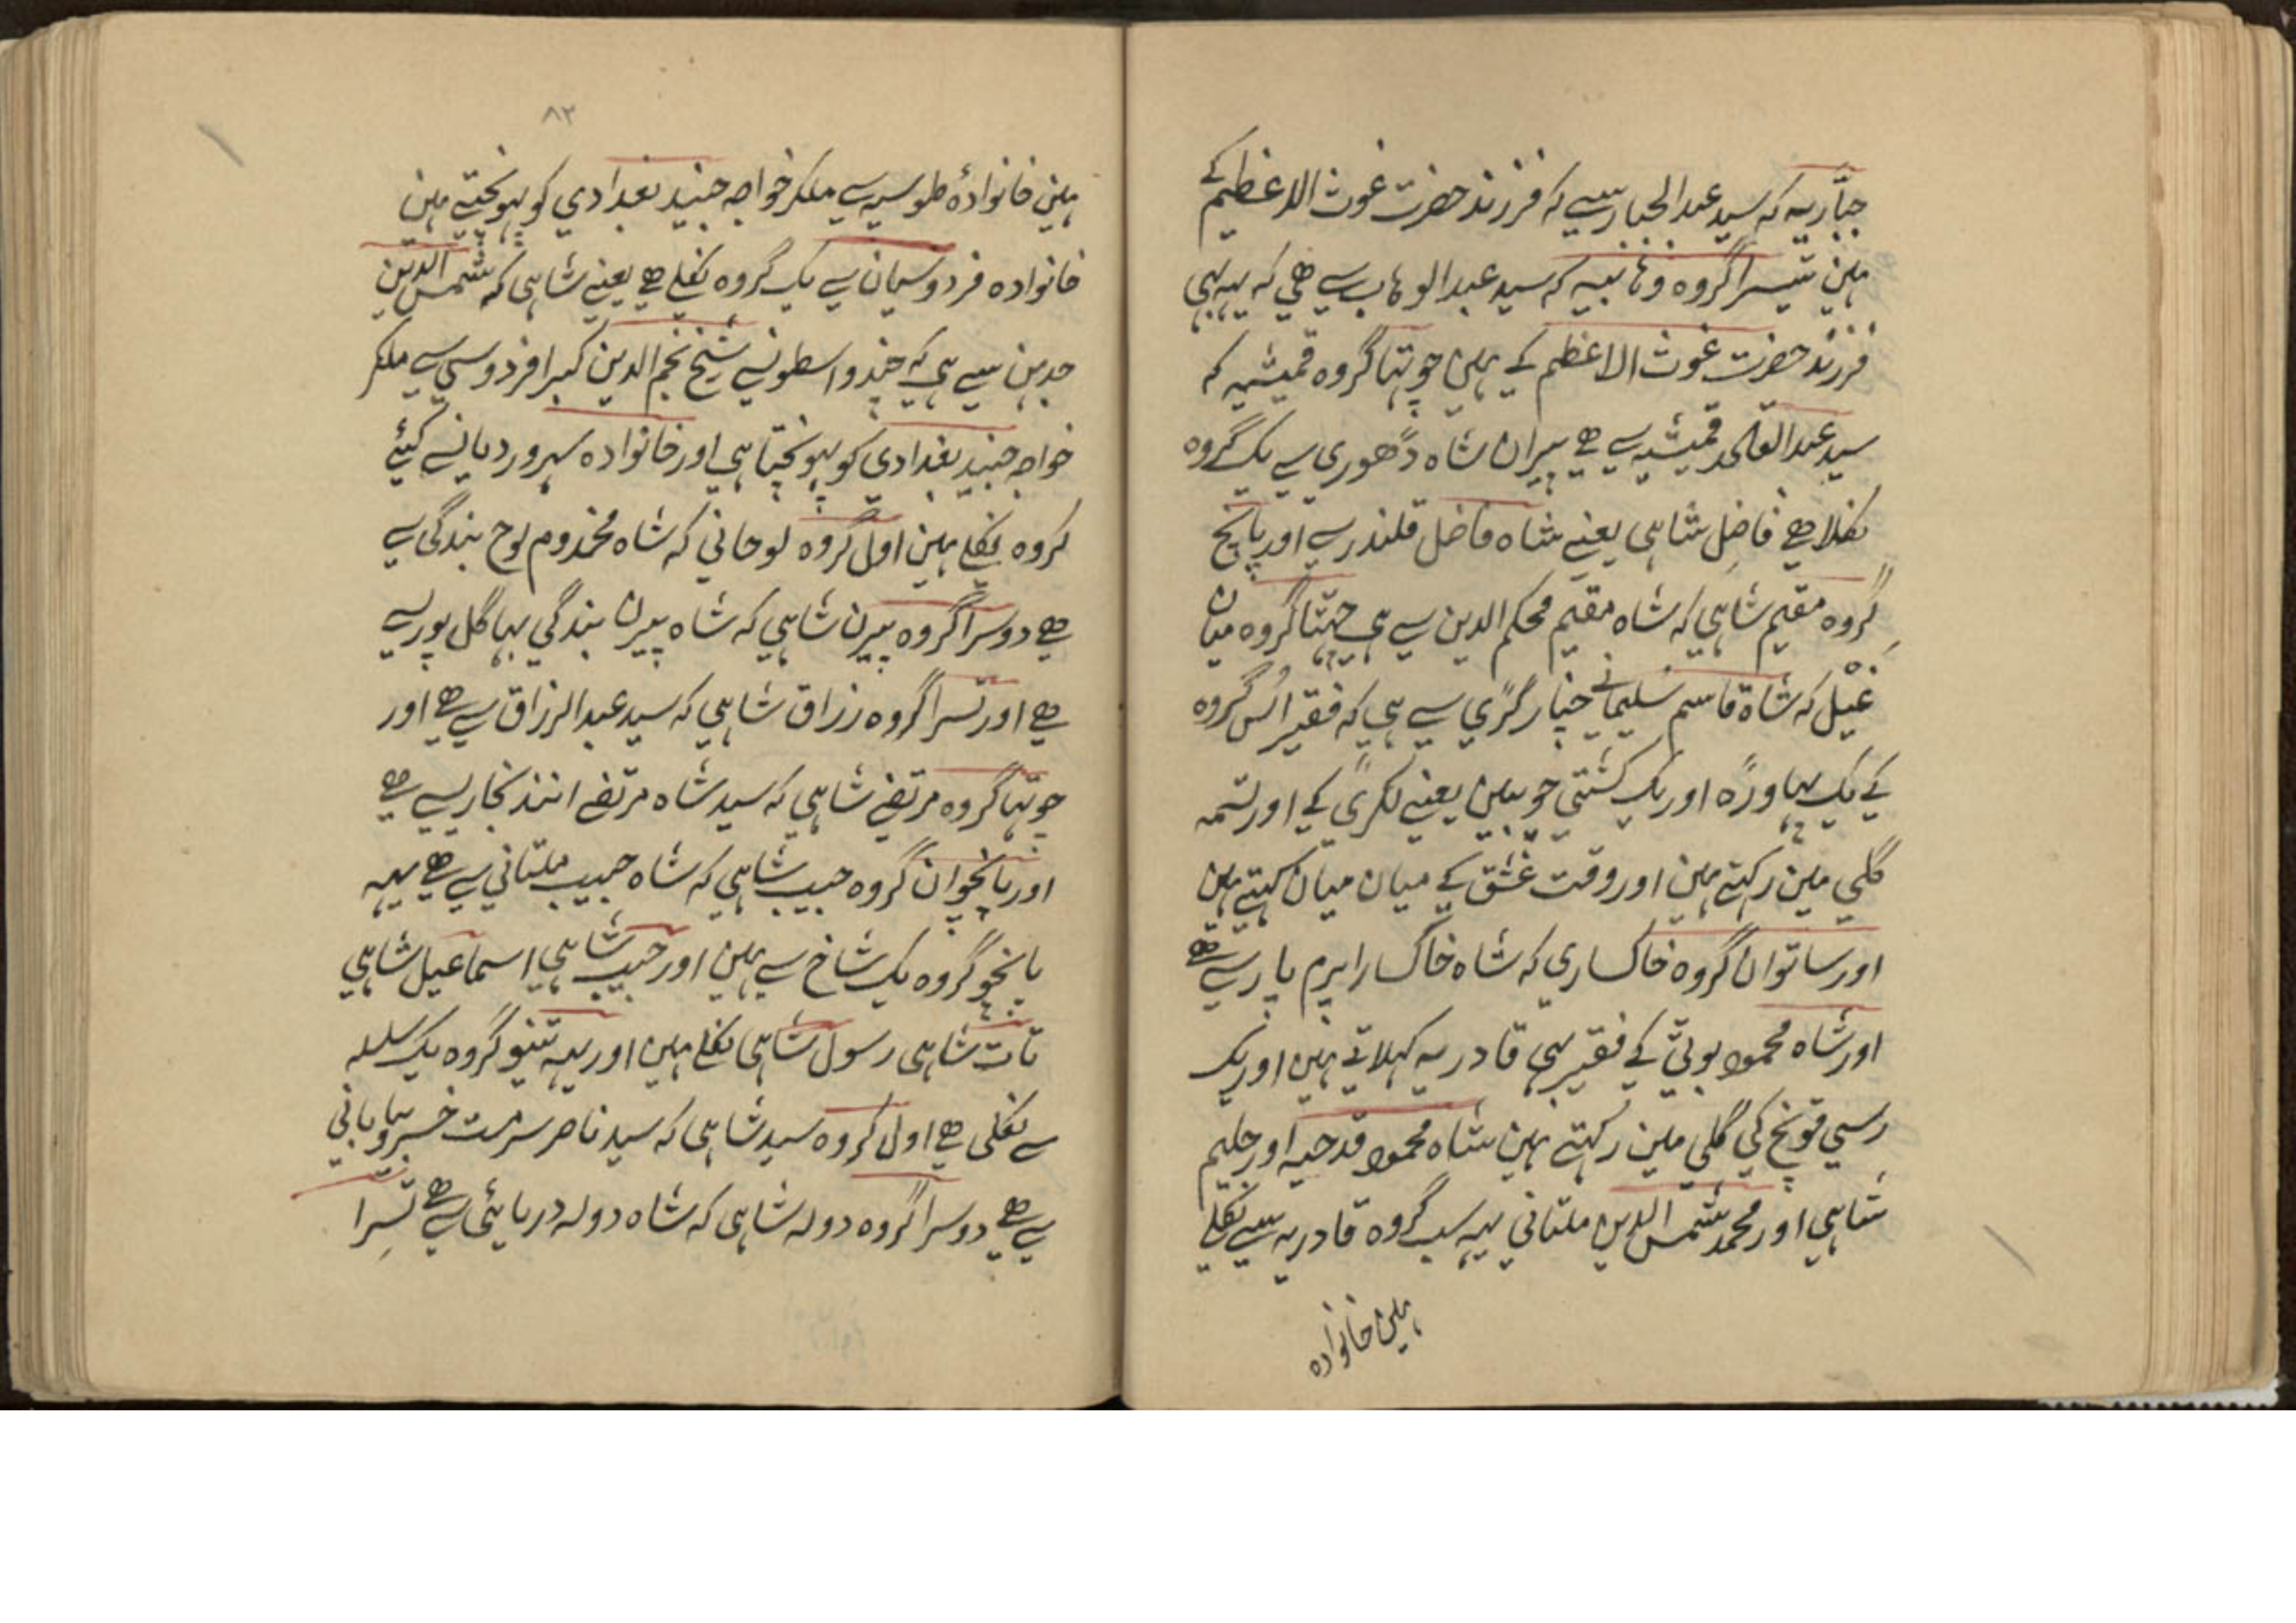 جبّاریہ کہ سید عبد الجبار سے کہ فرزند حضرت غوث الاعظم کے
ہین تیسرا گروہ وہابیہ کہ سید عبد الوہاب سے ھی کہ یہہ بہی
فرزند حضرت غوث الاعظم کے ہین چوتہا گروہ قمیشیہ کہ
سید عبد القمیشیہ سے ھے پیران شاہ دھوری سے یک گروہ
نکلا ھے فاضل شاہی یعنے شاہ فاضل قلندر سے اور پانچ
گروہ مقیم شاہی کہ شاہ مقیم محکم الدین سے ہی چہتّا گروہ میان
غیل کہ شاہ قاسم سلیمانے چنار گڑی سے ہی کہ فقیر اُس گروہ
کے یک پہاوڑہ اور یک کشتی چوبین یعنے لکڑی کے اور تسمہ
گلی مین رکہتے ہین اور وقت عشق کے میان میان کہتے ہین
اور ساتوان گروہ خاکساری کہ شاہ خاکسار ابرم پار سے ھے
اور شاہ محمود بوٹی کے فقیر بہی قادریہ کہلاتے ہین اور یک
رسی قونخ کی گلی مین رکہتے ہین شاہ محمود قدحیہ اور حلیم
شاہی اور محمد شمس الدین ملتانی یہہ سب گروہ قادریہ سے نکلے
ہین خانوادہ
۸۲
ہین خانوادۂ طوسیہ سے ملکر خواجہ جنید بغدادی کو پہونچتے ہین
خانوادہ فردوسیان سے یک گروہ نکلے ھے یعنے شاہی کہ شمس الدین
سے ہی کہ چند واسطونسے شیخ نجم الدین کبرا فردوسی سے ملکر
خواجہ جنید بغدادی کو پہونچتا ہی اور خانوادہ سہروردیانسے کیئے
گروہ نکلے ہین اول گروہ لوحانی کہ شاہ مخدوم لوح بندگی سے
ھے دوسرا گروہ پیرن شاہی کہ شاہ پیرن بندگی بہاگل پور سے
ھے اور تسرا گروہ رزاق شاہی کہ سید عبد الرزاق سے ھے اور
چوتہا گروہ مرتضے شاہی کہ سید شاہ مرتضے انند بخاری سے ھے
اور پانچوان گروہ حبیب شاہی کہ شاہ حبیب ملتانی سے ھے یہہ
پانچو گروہ یک شاخ سے ہین اور حبیب شاہی اسماعیل شاہی
تات شاہی رسول شاہی نکلے ہین اور یہہ تینو گروہ یک سلسلہ
سے نکلی ھے اول گروہ سید شاہی کہ سید ناصر سرمست
سے ھے دوسرا گروہ دولہ شاہی کہ شاہ دولہ دریائی سے ھے تسِرا